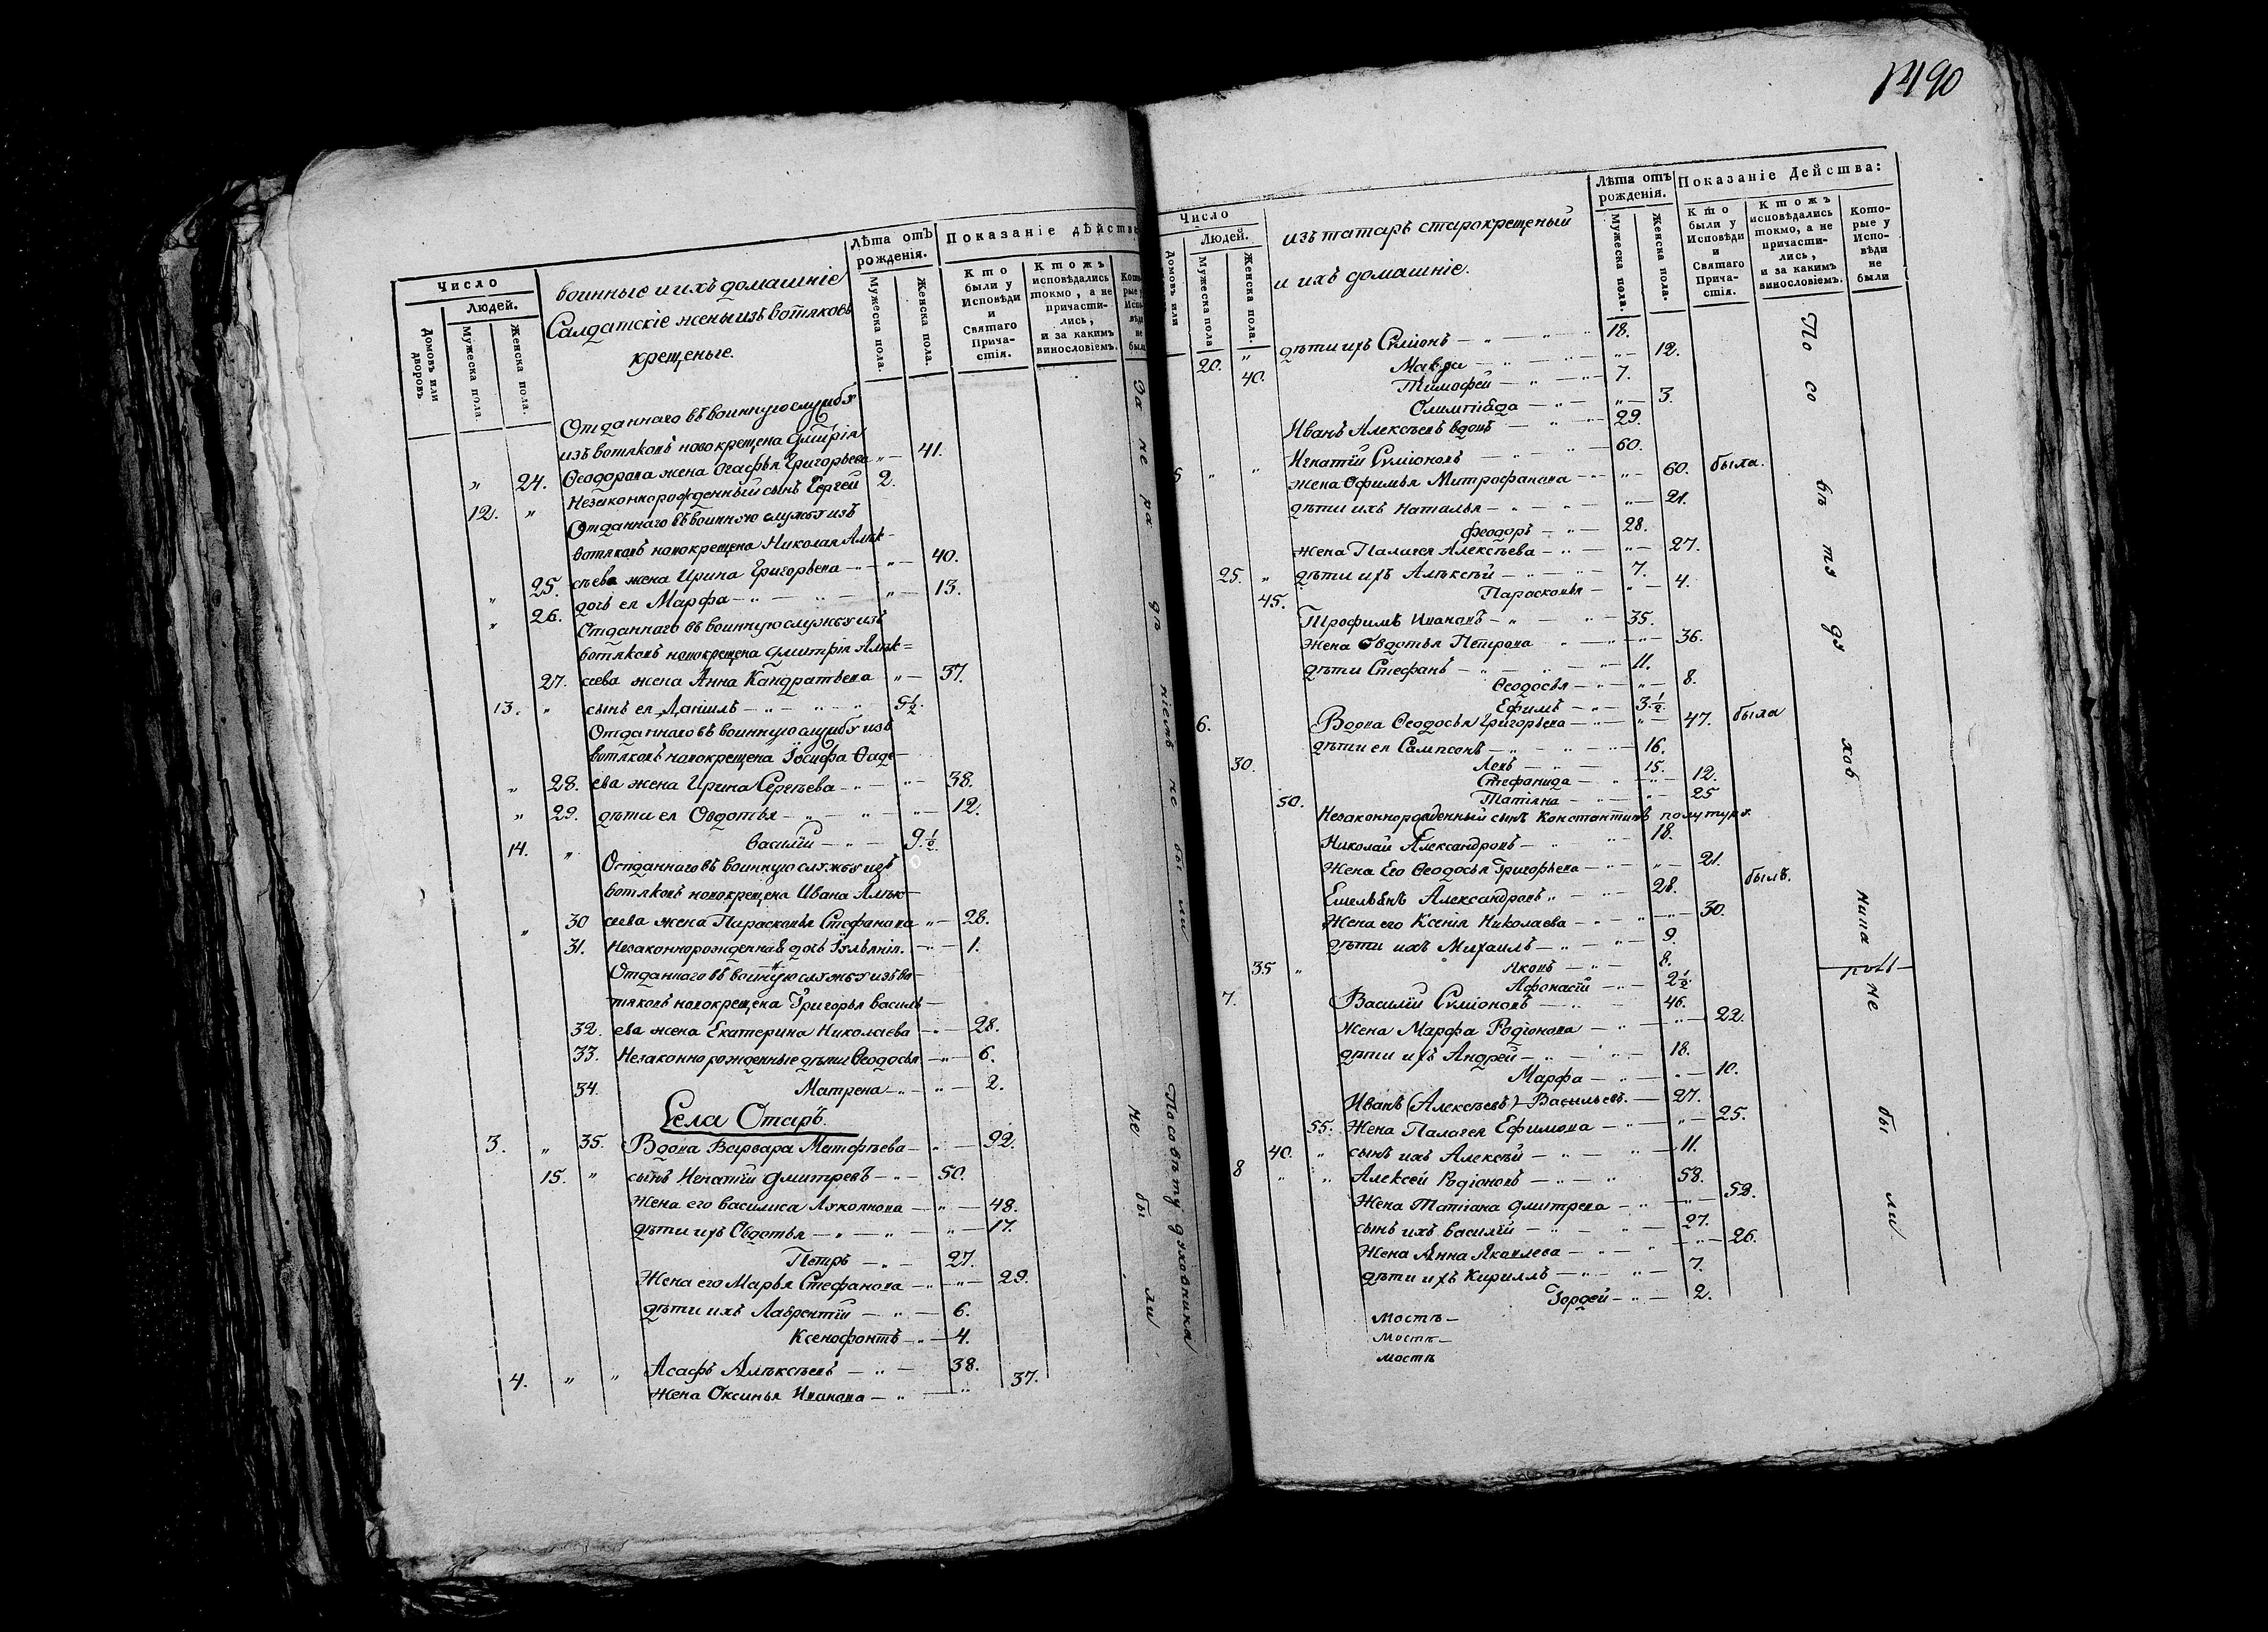 Число
Людей.
Домовъ или дворовъ
Мужеска пола.
Женска пола.
воинные и ихъ домашніе
Салдатскіе жены изъ вотяковъ
крещеные.
Лѣта отъ рожденія.
Мужеска пола.
Женска пола.
Показаніе дѣйств
Кто были у Исповѣди и Святаго Причастія.
Ктожъ исповѣдались токмо, а не причастились, и за какимъ винословіемъ.
Отданнаго въ воинную службу
изъ вотяковъ новокрещена Дмитрія
" 24. Ѳеодорова жена Агафья Григорьева " — 41.
12. " Незаконнорожденный сынъ Сергей 2.
Отданнаго въ воинную службу изъ
вотяковъ новокрещена Николая Алек-
" 25. сѣева жена Ирина Григорьева — " — 40.
" 26. дочь ея Марфа — " — " — 13.
Отданнаго въ воинную службу изъ
вотяковъ новокрещена Дмитрія Алек=
27. сеева жена Анна Кандратьева " — 37.
13. " сынъ ея Даніилъ — " — 5½.
Отданнаго въ воинную службу изъ
вотяковъ новокрещена Іосифа Ѳаде—
" 28. ева жена Ирина Сергѣева — " — " — 38.
" 29. дѣти ея Овдотья — " — " — 12.
14. " Василій — " — 9½.
Отданнаго въ воинную службу изъ
вотяковъ новокрещена Ивана Алек—
" 30 сеева жена Парасковья Стефанова " — 28.
31. Незаконнорожденная дочь Іульянія. — " — 1.
Отданнаго въ воинную службу изъ во—
тяковъ новокрещена Григорья Василь—
32. ева жена Екатерина Николаева — " — 28.
33. Незаконно рожденные дѣти Ѳеодосья — " — 6.
34. Матрена — " — 2.
Села Отаръ.
3. " 35. Вдова Варвара Матфѣева — " — 92.
15. " сынъ Игнатій Дмитревъ — " — 50.
Жена его Василиса Луконнова — " — 48.
дѣти ихъ Овдотья — " — " — 17.
Петръ — " — 27.
Жена его Марья Стефанова — " — " — 29.
дѣти ихъ Лаврентій — " — 6.
Ксенофонтъ — " — 4.
4. " " Асафъ Алексѣевъ — " — 38.
Жена Оксинья Иванова — " — " 37.
За не ра дѣ ніемъ не бы ли
По совѣту духовника
не бы ли
1490
Число
Людей.
Домовъ или
Мужеска пола
Женска пола.
изъ татаръ старокрещеный
и ихъ домашніе.
Лѣта отъ рожденія.
Мужеска пола.
Женска пола.
Показаніе Действа:
Кто были у Исповѣди и Святаго Причастія.
Ктожъ исповѣдались токмо, а не причастились, и за какимъ винословіемъ.
Которые у Исповѣди не были
20. " дѣти ихъ Сѵміонъ — " — " 18.
40. Мавра — " — " — 12.
Тимофей — " — 7.
Олимпіада — " — " — 3.
Иванъ Алексѣевъ вдовъ — " — 29.
5 " " Игнатій Сѵміоновъ — " — 60.
Жена Офимья Митрофанова — " — 60. была.
дѣти ихъ Наталья — " — " — 21.
Феодоръ — " — 28.
Жена Палагея Алексѣева — " — " — 27.
25. " дѣти ихъ Алексѣй — " — " 7.
45. Парасковья — " — 4.
Трофимъ Ивановъ — " — " — 35.
Жена Овдотья Петрова " — " — 36.
дѣти Стефанъ — " — " — 11.
Ѳеодосья — " — " — 8.
Ефимъ — " — 3½.
6. Вдова Ѳеодосья Григорьева — " — " — 47. была
дѣти ея Сампсонъ — " — " — 16.
30. Левъ — " — 15.
Стефанида — " — " — 12.
50. Татіяна — " — " — 25
Незаконнорожденный сынъ Константинъ полутура.
Николай Александровъ — " — 18.
Жена Его Ѳеодосья Григорьева — " — " — 21.
Емельянъ Александровъ " — " — 28. былъ.
Жена его Ксенія Николаева — " — " — 30.
дѣти ихъ Михаилъ — " — " — 9.
35 " Яковъ — " — 8.
Афонасій — " — 2½.
7. Василій Сѵміоновъ — " — 46.
Жена Марфа Родіонова — " — " — 22.
дѣти ихъ Андрей — " — " — 18.
Марфа — " — " — 10.
Иванъ (Алексѣевъ) Васильевъ. — 27.
55. Жена Палагея Ефимова — " — " — 25.
40. " сынъ ихъ Алексѣй — " — " — 11.
8 " " Алексей Родіоновъ — " — " 58.
Жена Татіана Дмитрева — " — " — 52.
сынъ ихъ Василій — " — " — 27.
Жена Анна Яковлева — " — " — 26.
дѣти ихъ Кириллъ — " — " — 7.
Гордей — " — 2.
мостъ —
мостъ —
мостъ
По со вѣ ту ду хов ника не бы ли